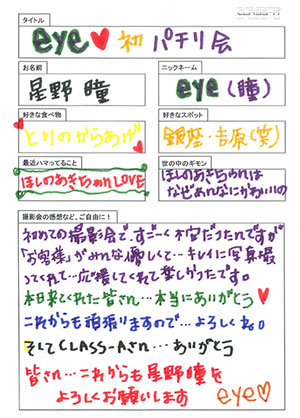 CLASS-A
タイトル
eye♥初パチリ会
お名前
ニックネーム
星野 瞳
eye(瞳)
好きな食べ物
好きなスポット
とりのからあげ
銀座・吉原(笑)
最近ハマってること
世の中のギモン
ほしのあきちゃんLOVE
ほしのあきちゃんは
なぜあんなにかわいいの
撮影会の感想など、ご自由に!
初めての撮影会で、すごーく不安だったんですが
「お客様」がみんな優しくて…キレイに写真撮
ってくれて…応援してくれて楽しかったです。
本日来てくれた皆さん…本当にありがとう♥
これからも頑張りますので…よろしくね。
そしてCLASS-Aさん…ありがとう
皆さん…これからも星野瞳を
よろしくお願いします eye♡